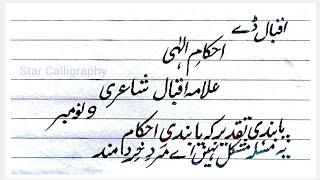 اقبال ڈے
احکامِ الہٰی
Star Calligraphy
علامہ اقبال شاعری
9 نومبر
پابندیٔ تقدیر کہ پابندیٔ احکام
یہ مسئلہ مشکل نہیں اے مردِ خردمند